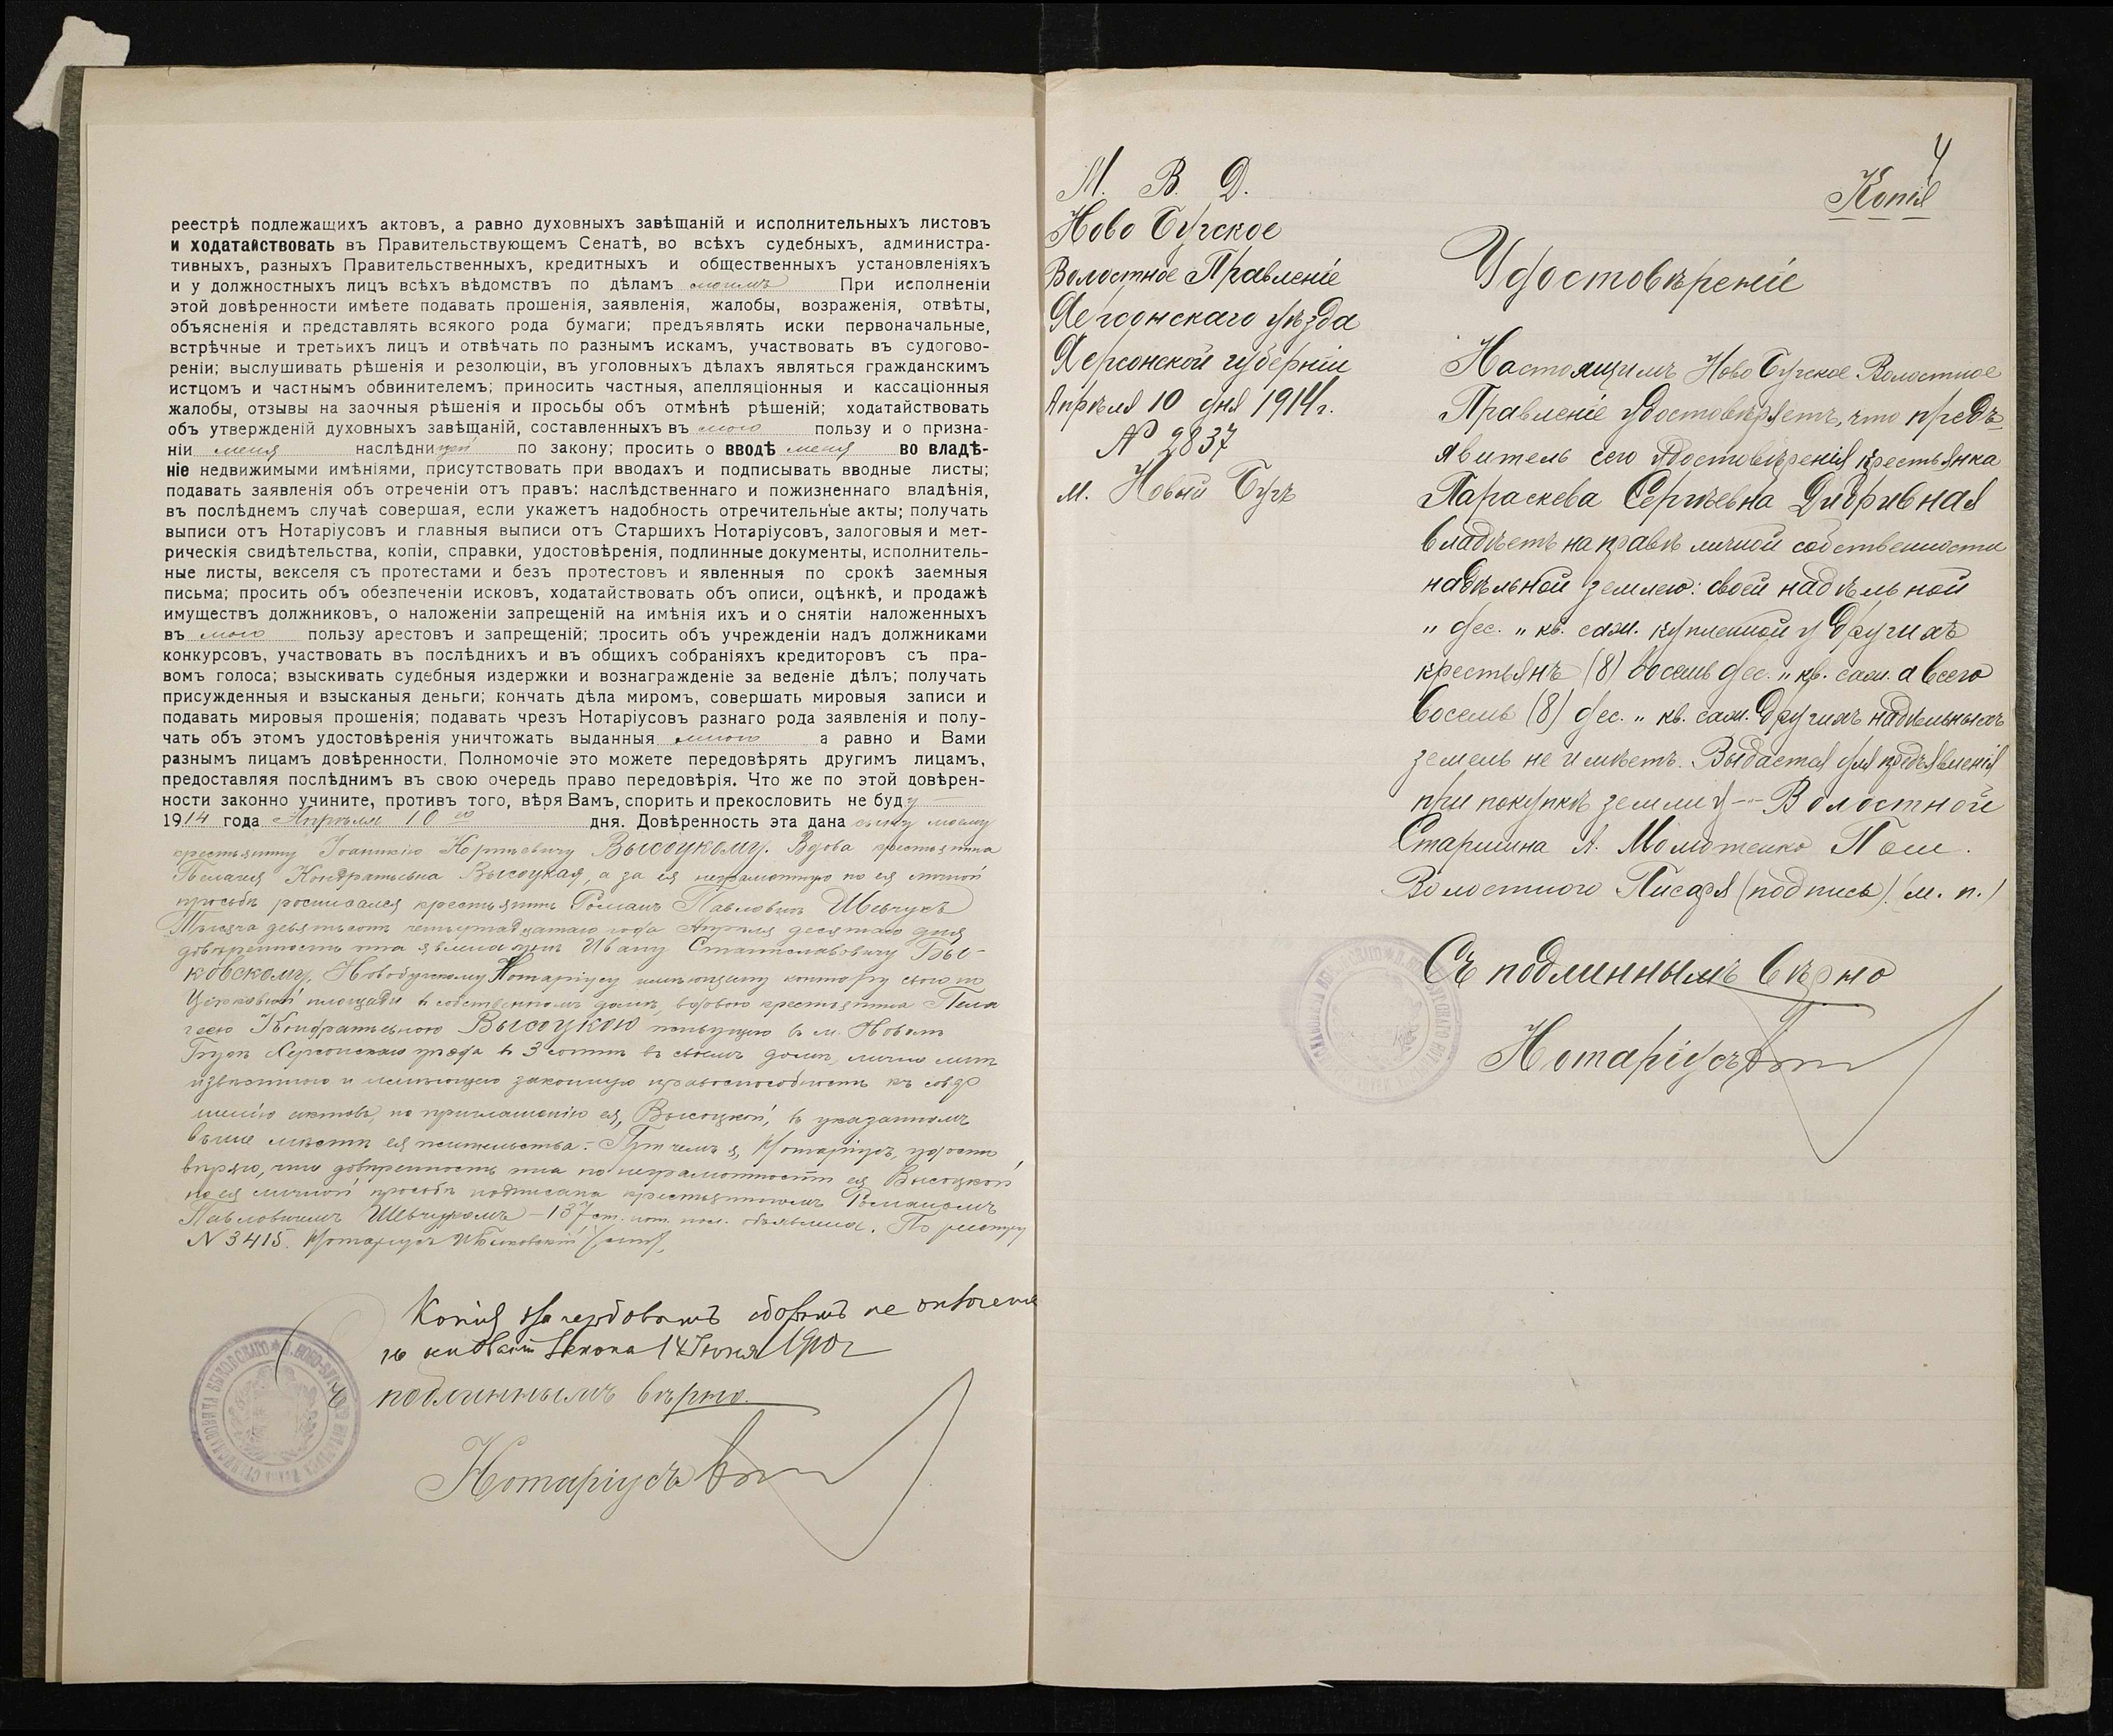 реестрѣ подлежащихъ актовъ, а равно духовныхъ завѣщаній и исполнительныхъ листовъ
и ходатайствовать въ Правительствующемъ Сенатѣ, во всѣхъ судебныхъ, администра-
тивныхъ, разныхъ Правительственныхъ, кредитныхъ и общественныхъ установленіяхъ
и у должностныхъ лицъ всѣхъ вѣдомствъ по дѣламъ моимъ При исполненіи
этой довѣренности имѣете подавать прошенія, заявленія, жалобы, возраженія, отвѣты,
объясненія и представлять всякого рода бумаги; предъявлять иски первоначальные,
встрѣчные и третьихъ лицъ и отвѣчать по разнымъ искамъ, участвовать въ судогово-
реніи; выслушивать рѣшенія и резолюціи, въ уголовныхъ дѣлахъ являться гражданскимъ
истцомъ и частнымъ обвинителемъ; приносить частныя, апелляціонныя и кассаціонныя
жалобы, отзывы на заочныя рѣшенія и просьбы объ отмѣнѣ рѣшеній; ходатайствовать
объ утвержденій духовныхъ завѣщаній, составленныхъ въ мою пользу и о призна-
ніи меня наслѣдницей по закону; просить о вводѣ меня во владѣ-
ніе недвижимыми имѣніями, присутствовать при вводахъ и подписывать вводные листы;
подавать заявленія объ отреченіи отъ правъ: наслѣдственнаго и пожизненнаго владѣнія,
въ послѣднемъ случаѣ совершая, если укажетъ надобность отречительные акты; получать
выписи отъ Нотаріусовъ и главныя выписи отъ Старшихъ Нотаріусовъ, залоговыя и мет-
рическія свидѣтельства, копіи, справки, удостовѣренія, подлинные документы, исполнитель-
ные листы, векселя съ протестами и безъ протестовъ и явленныя по срокѣ заемныя
письма; просить объ обезпеченіи исковъ, ходатайствовать объ описи, оцѣнкѣ, и продажѣ
имуществъ должниковъ, о наложеніи запрещеній на имѣнія ихъ и о снятіи наложенныхъ
въ мою пользу арестовъ и запрещеній; просить объ учрежденіи надъ должниками
конкурсовъ, участвовать въ послѣднихъ и въ общихъ собраніяхъ кредиторовъ съ пра-
вомъ голоса; взыскивать судебныя издержки и вознагражденіе за веденіе дѣлъ; получать
присужденныя и взысканыя деньги; кончать дѣла миромъ, совершать мировыя записи и
подавать мировыя прошенія; подавать чрезъ Нотаріусовъ разнаго рода заявленія и полу-
чать объ этомъ удостовѣренія уничтожать выданныя мною а равно и Вами
разнымъ лицамъ довѣренности. Полномочіе это можете передовѣрять другимъ лицамъ,
предоставляя послѣднимъ въ свою очередь право передовѣрія. Что же по этой довѣрен-
ности законно учините, противъ того, вѣря Вамъ, спорить и прекословить не буду
1914 года Апрѣля 10 го дня. Довѣренность эта дана сыну моему
крестьянину Іоаникію Высоцкому. Вдова крестьянина
Пелагея Кондратьевна Высоцкая, а за ея неграмотную по ея личной
просьбѣ росписался крестьянинъ Романъ Павловичъ Шевчукъ
Тысяча девятьсотъ четырнадцатаго года Апрѣля десятаго дня
довѣренность эта явлена мнѣ Ивану Станиславовичу Бы-
ковскому, Новобугскому Нотаріусу имѣющему контору свою по
Церковной площади въ собственномъ домѣ, вдовою крестьянина Пела
геею Кондратьевною Высоцкою живущею въ м. Новомъ
Бугѣ Херсонскаго уѣзда въ 3 сотнѣ въ своемъ домѣ, лично мнѣ
извѣстною и имѣющею законную правоспособность къ совер
шенію актовъ, по приглашенію ея, Высоцкой, въ указанномъ
выше мѣстѣ ея жительства. Причемъ я, Нотаріусъ, удосто
вѣряю, что довѣренность эта по неграмотности ея Высоцкой
по ея личной просьбѣ подписана крестьяниномъ Романомъ
Павловичемъ Шевчукомъ – 137 ст. нот. пол. объявлена. По реестру
N 3415. Нотаріусъ
Копія сборомъ не
Закона 14 Іюня 1910 г
подлиннымъ вѣрно.
Нотаріусъ
4
Копія
М. В. Д.
Ново Бугское
Волостное Правленіе
Херсонскаго уѣзда
Херсонской губерніи
Апрѣля 10 дня 1914 г.
№ 2837
м. Новый Бугъ
Удостовѣреніе
Настоящимъ Ново Бугское Волостное
Правленіе удостовѣряетъ, что предъ-
явитель сего удостовѣренія крестьянка
Параскева Сергѣевна Дигривная
владѣетъ на правѣ личной собственности
надѣльной землею: своей надѣльной
" дес. " кв. саж. купленной у другихъ
крестьянъ (8) восемь дес. " кв. саж. а всего
восемь (8) дес. " кв. саж. других надѣльныхъ
земель не имѣетъ. Выдается для предъявленія
при покупкѣ земли Волостной
Старшина А. Молотенко Пом.
Волостного Писаря (подпись) (м. п.)
Съ подлиннымъ вѣрно
Нотаріусъ